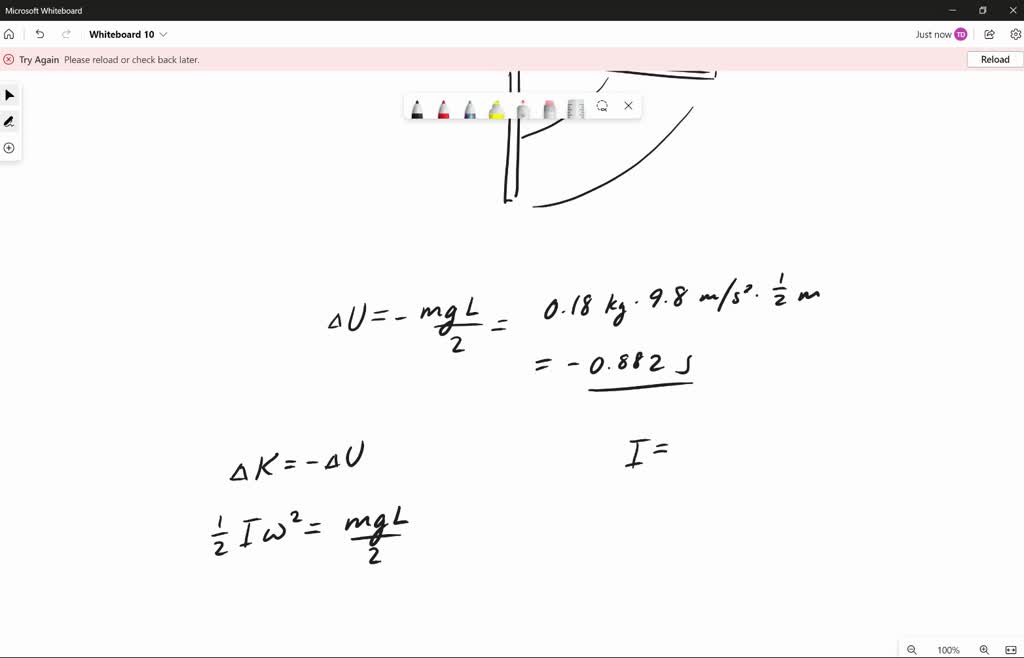 Microsoft Whiteboard
Whiteboard 10
Just now TD
Try Again Please reload or check back later.
Reload
ΔU = - mgL/2 = 0.18 kg · 9.8 m/s² · 1/2 m
= - 0.882 J
ΔK = - ΔU
I =
1/2 I ω² = mgL/2
100%